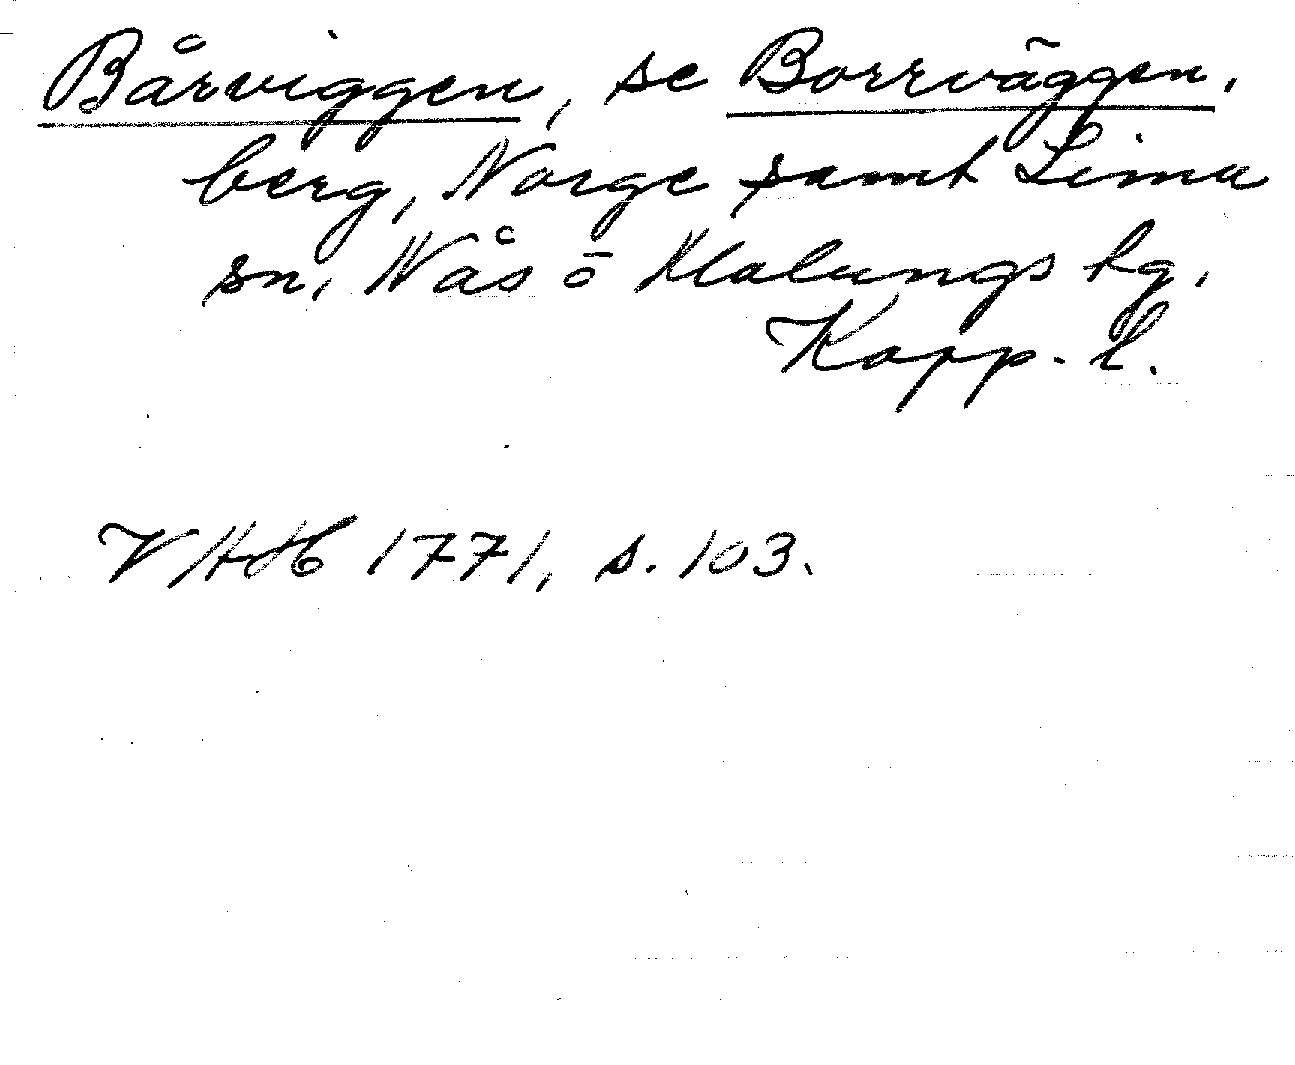 Bårviggen, se Borrväggen.
berg, Norge samt Lima
sn, Nås o Malungs hg,
Kopp. l.
VHAH 1771, s. 103.